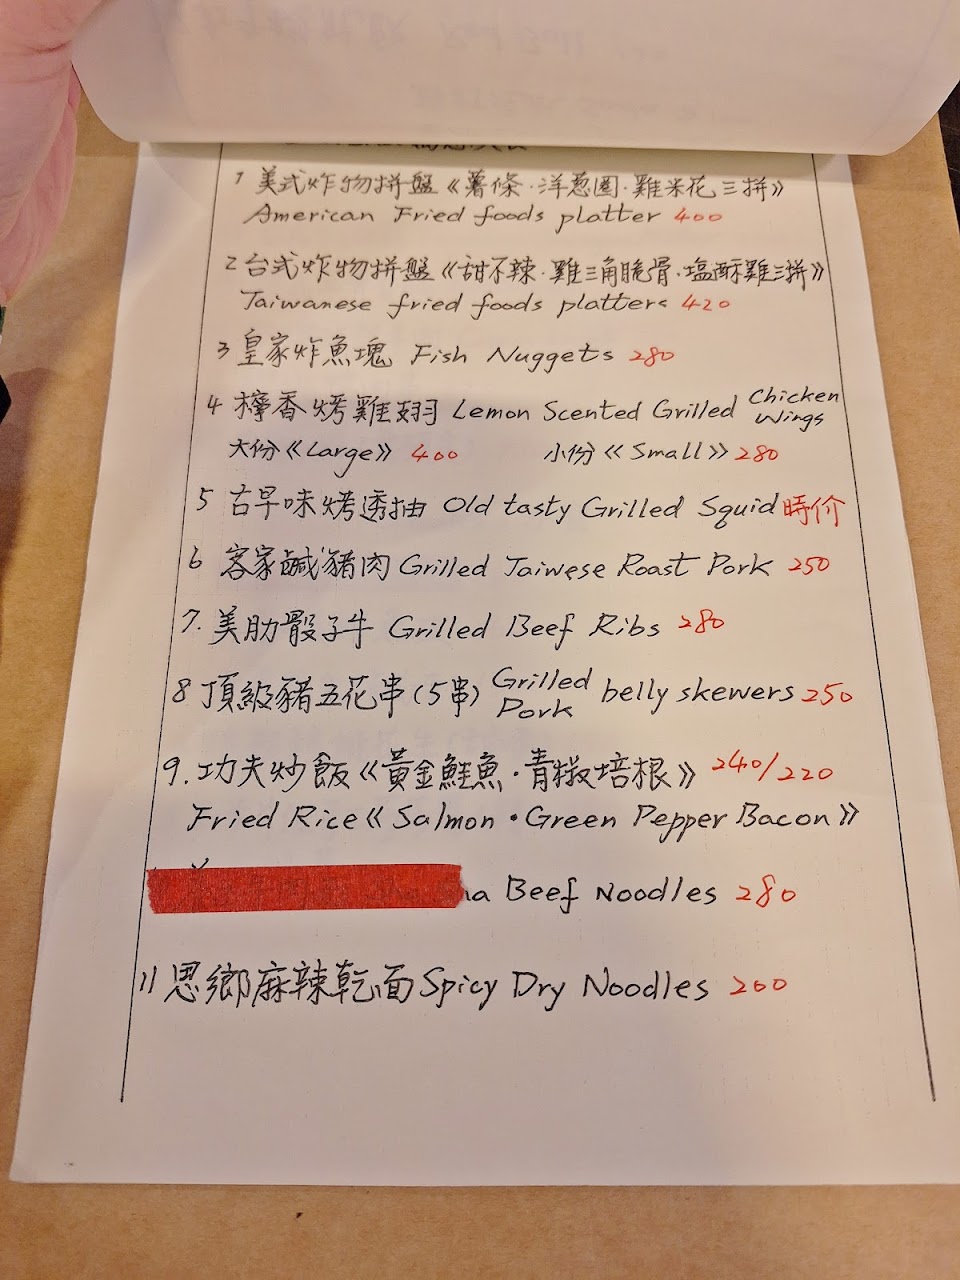 1 美式炸物拼盤《薯條·洋葱圈·雞米花三拼》
American Fried foods platter 400
2 台式炸物拼盤《甜不辣·雞三角脆骨·塩酥雞三拼》
Taiwanese fried foods platters 420
3 皇家炸魚塊 Fish Nuggets 280
4 檸香烤雞翅 Lemon Scented Grilled Chicken Wings
大份《Large》 400 小份《Small》 280
5 古早味烤透抽 Old tasty Grilled Squid 時价
6 客家鹹豬肉 Grilled Taiwese Roast Pork 250
7. 美肋骰子牛 Grilled Beef Ribs 280
8 頂級豬五花串(5串) Grilled Pork belly skewers 250
9. 功夫炒飯《黃金鮭魚·青椒培根》 240/220
Fried Rice《Salmon·Green Pepper Bacon》
Beef Noodles 280
11 思鄉麻辣乾面 Spicy Dry Noodles 200